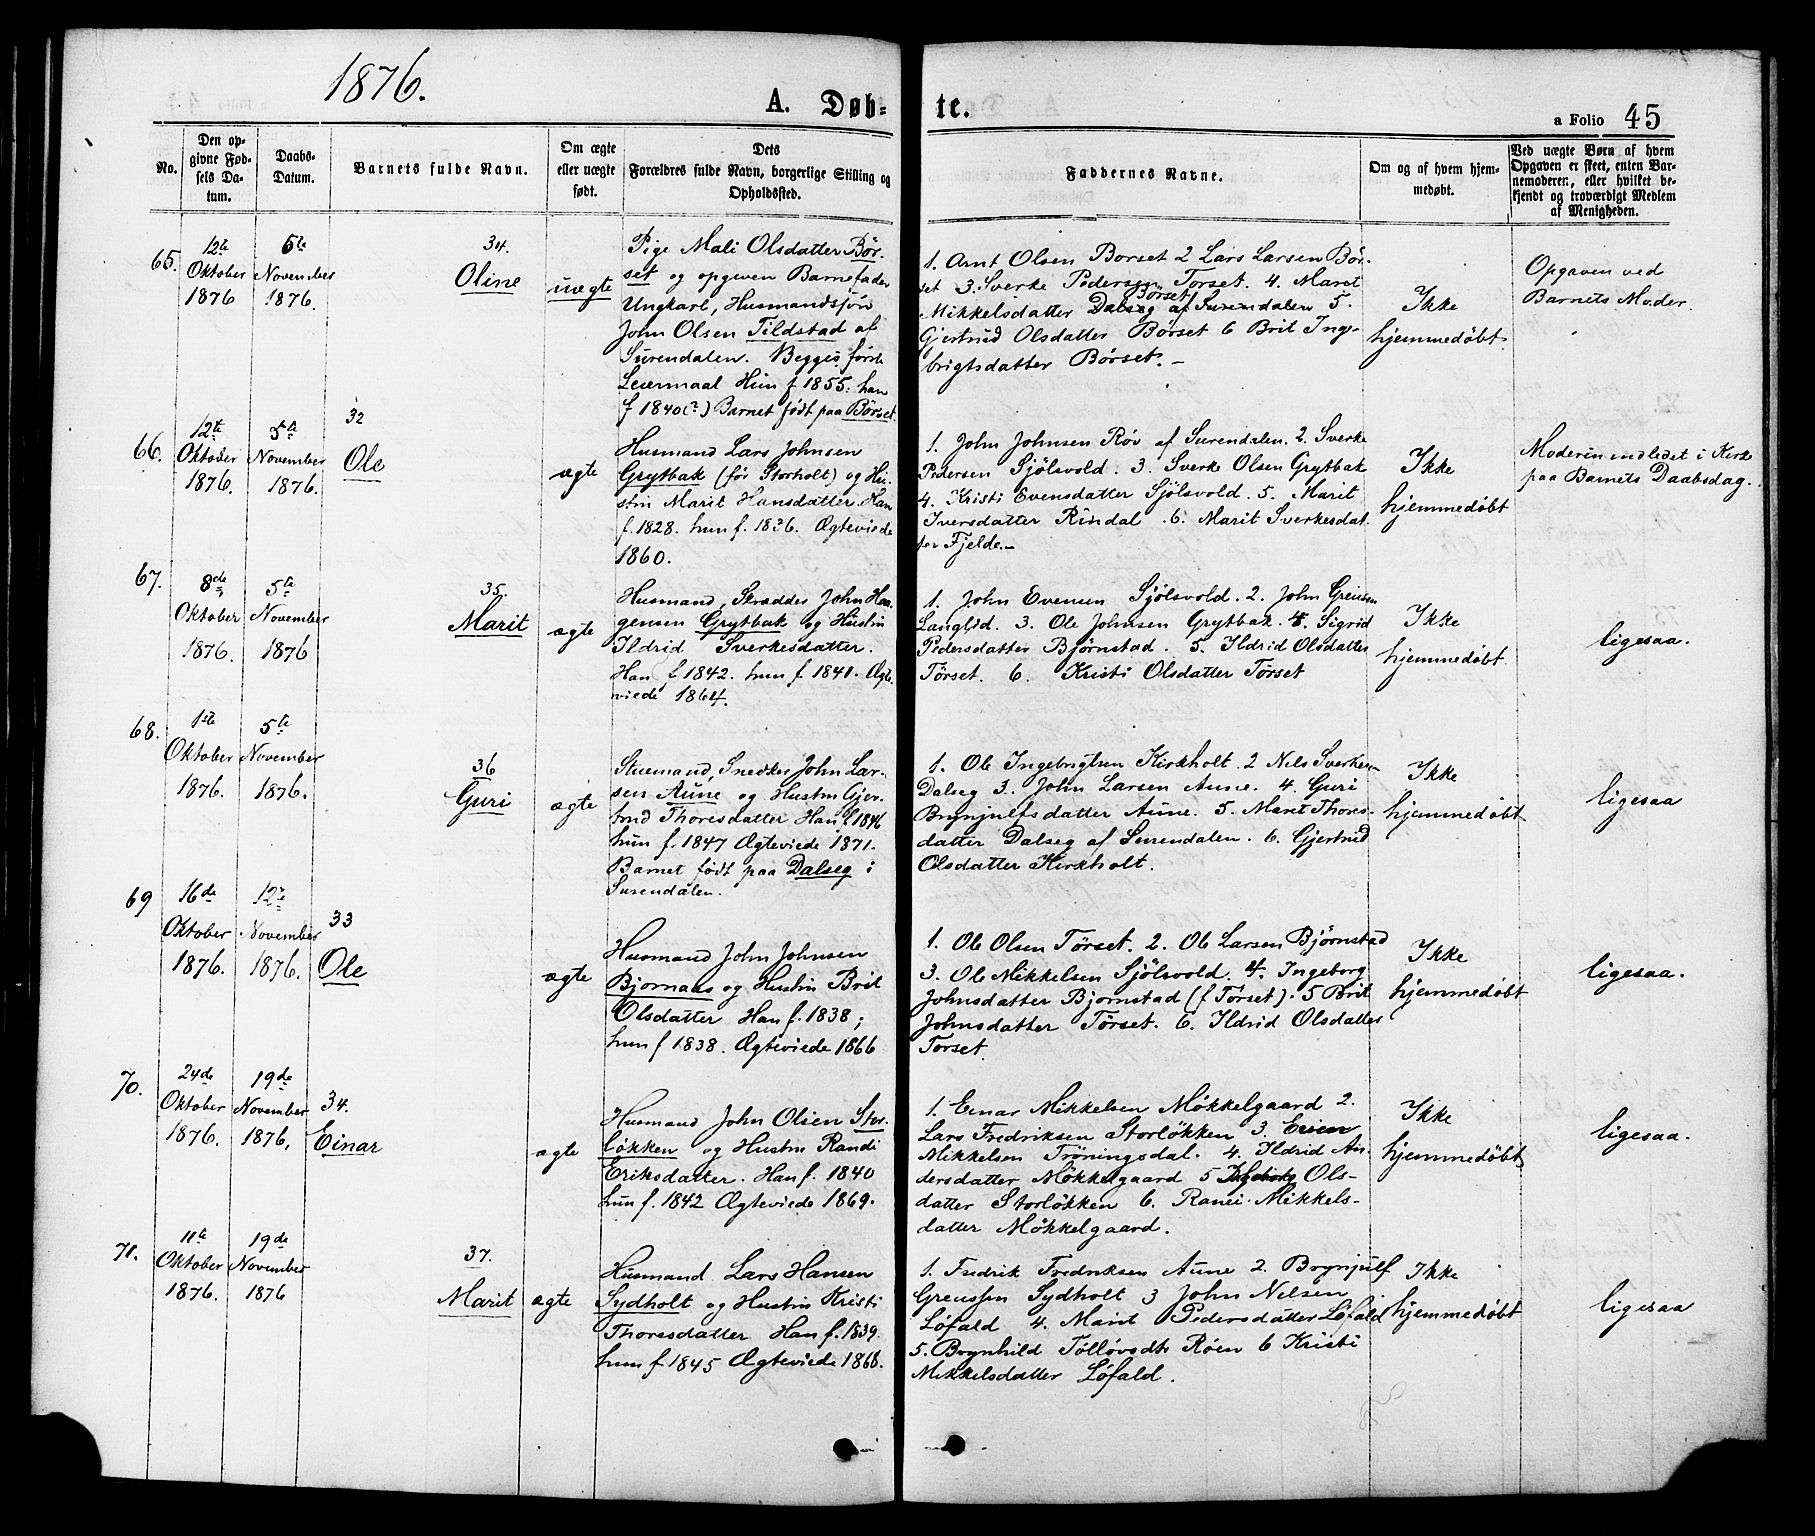 1876.
A. Døb=
te.
a Folio 45
No.
Den op-
givne Fød-
sels Da-
tum.
Daabs-
Datum.
Barnets fulde Navn.
Om ægte
eller uægte
født.
Dets
Forældres fulde Navn, borgerlige Stilling og
Opholdssted.
Faddernes Navne.
Om og af hvem hjem-
medøbt.
Ved uægte Børn af hvem
Opgaven er skeet, enten Bar-
nemoderen, eller hvilket be-
kjendt og troværdigt Medlem
af Menigheden.
65.
12te
Oktober
1876
5te
November
1876.
34.
Oline
uægte
Pige Mali Olsdatter Bør-
set og opgiven Barnefader
Ungkarl, Husmandssøn
John Olsen Tildstad af
Surendalen. Begges første
Leiermaal Hun f. 1855. han
f 1840(?) Barnet født paa Børset.
1. Arnt Olsen Borset 2 Lars Larsen Bør-
set 3. Sverke Pedersen Torset. 4. Maret
Børset
Mikkelsdatter Dalseg af Surendalen 5.
Gjertrud Olsdatter Børset 6 Brit Ing-
brigtsdatter Børset. -
Ikke
hjemmedøbt.
Opgaven ved
Barnets Moder.
66.
12te
Oktober
1876.
5te
November
1876.
32
Ole
ægte
Husmand Lars Johnsen
Grytbak (før Storholt) og Hu-
stru Marit Hansdatter. Han
f. 1828. hun f. 1836. Ægteviede
1860.
1. John Johnsen Røv af Surendalen. 2. Sverke
Pedersen Sjölsvold. 3. Sverke Olsen Grytbak
4. Kristi Evensdatter Sjölsvold. 5. Marit
Iversdatter Rindal. 6. Marit Sverkesdat-
ter Fjelde. -
Ikke
hjemmedøbt
Moderen indledet i Kirke
paa Barnets Daabsdag.
67.
8de
Oktober
1876.
5te
November
1876
35.
Marit
ægte
Husmand, Skrædder John Haa-
gensen Grytbak og Hustru
Ildrid Sverkesdatter.
Han f. 1842. hun f. 1841. Ægte-
viede 1864.
1. John Evensen Sjölsvold. 2. John Grensen
Langlid. 3. Ole Johnsen Grytbak. 4. Sigrid
Pedersdatter Bjørnstad. 5. Ildrid Olsdatter
Törset. 6. Kristi Olsdatter Torset
Ikke
hjemmedøbt
ligesaa.
68.
1ste
Oktober
1876.
5te
November
1876.
36
Guri
ægte
Stuemand, Snedker John Lar-
sen Aune og Hustru Gjer-
trud Thoresdatter Han f. 1846
hun f. 1847 Ægteviede 1871.
Barnet født paa Dalseg i
Surendalen.
1. Ole Ingebrigtsen Kirkholt. 2 Nils Sverkesen
Dalseg 3. John Larsen Aune. 4. Guri
Brynjulfsdatter Aune. 5. Maret Thores-
datter Dalseg af Surendalen. 6. Gjertrud
Olsdatter Kirkholt.
Ikke
hjemmedøbt
ligesaa
69
16de
Oktober
1876.
12te
November
1876.
33
Ole
ægte
Husmand John Johnsen
Bjornaas og Hustru Brit
Olsdatter Han f. 1838;
hun f 1838. Ægteviede 1866
1. Ole Olsen Törset. 2. Ole Larsen Bjørnstad
3. Ole Mikkelsen Sjölsvold. 4. Ingeborg
Johnsdatter Bjornstad (f Törset). 5 Brit
Johnsdatter Törset. 6. Ildrid Olsdatter
Torset.
Ikke
hjemmedøbt
ligesaa.
70.
24de
Oktober
1876.
19de
November
1876.
34.
Einar
ægte
Husmand John Olsen Stor-
løkken og Hustru Randi
Eriksdatter. Han f. 1840
hun f. 1842 Ægteviede 1869.
1. Einar Mikkelsen Møkkelgaard 2.
Lars Fredriksen Storløkken 3.
Mikkelsen Tröningsdal. 4. Ildrid An-
dersdatter Møkkelgaard 5 Ingeborg Ols-
datter Storløkken 6. Mikkels-
datter Møkkelgaard.
Ikke
hjemmedøbt
ligesaa.
71.
11te
Oktober
1876.
19de
November
1876
37.
Marit
ægte
Husmand Lars Hansen
Sydholt og Hustru Kristi
Thoresdatter Han f. 1839.
hun f. 1845 Ægteviede 1868.
1. Fredrik Fredriksen Aune 2 Brynjulf
Grensen Sydholt 3 John Nilsen
Löfald 4. Marit Pedersdatter Löfald
5. Brynhild Tølløvsdtr Røen 6 Kristi
Mikkelsdatter Löfald.
Ikke
hjemmedøbt
ligesaa